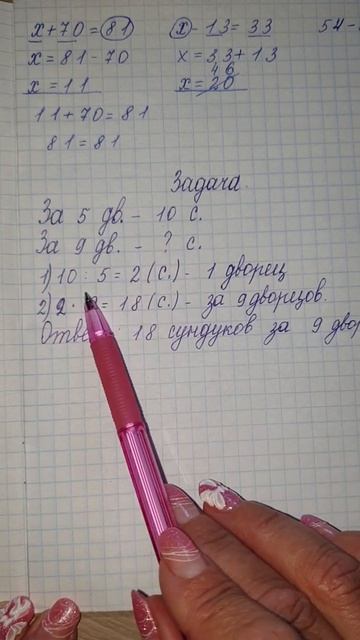 x + 70 = 81
x - 13 = 33
54 -
x = 81 - 70
x = 33 + 13
x = 11
46
x = 20
11 + 70 = 81
81 = 81
Задача.
За 5 дв. - 10 с.
За 9 дв. - ? с.
1) 10 : 5 = 2 (с.) - 1 дворец
2) 2 · = 18 (с.) - за 9 дворцов.
18 сундуков за 9